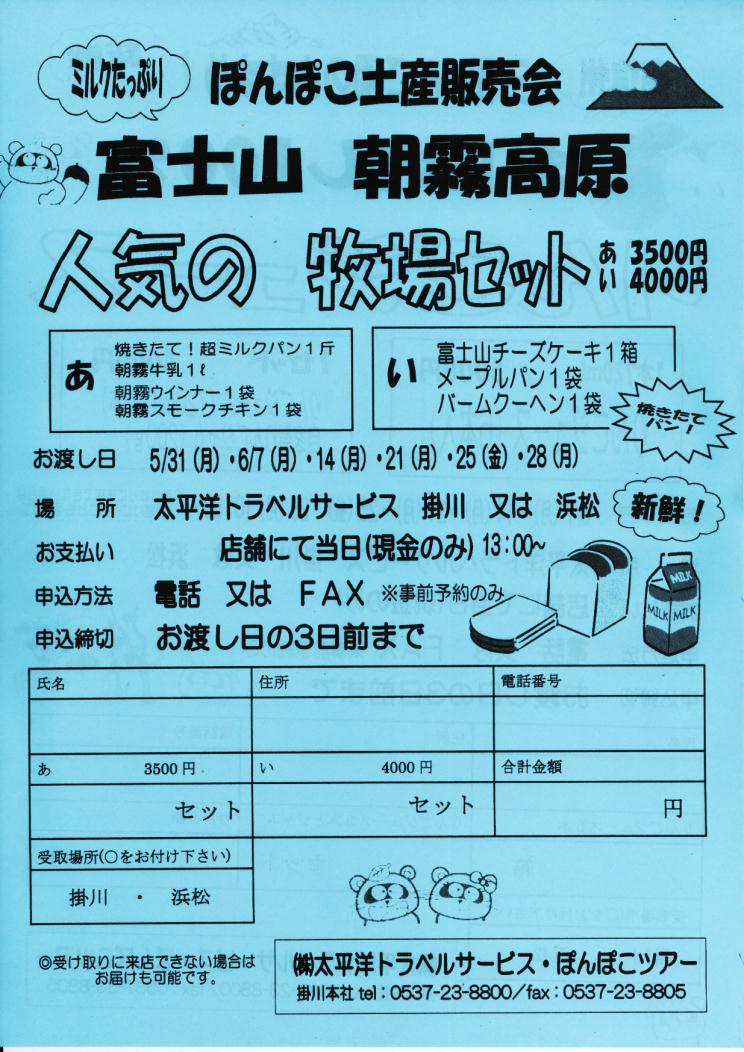 ミルクたっぷり
ぽんぽこ土産販売会
富士山 朝霧高原
人気の 牧場セット
あ 3500円
い 4000円
あ
焼きたて！超ミルクパン１斤
朝霧牛乳１ℓ
朝霧ウインナー１袋
朝霧スモークチキン１袋
い
富士山チーズケーキ１箱
メープルパン１袋
バームクーヘン１袋
焼きたて
パン！
お渡し日 5/31(月)・6/7(月)・14(月)・21(月)・25(金)・28(月)
場 所 太平洋トラベルサービス 掛川 又は 浜松
新鮮！
お支払い 店舗にて当日(現金のみ) 13:00~
申込方法 電話 又は ＦＡＸ ※事前予約のみ
申込締切 お渡し日の３日前まで
MILK
MILK MILK
氏名 住所 電話番号
あ 3500円 い 4000円 合計金額
セット セット 円
受取場所(〇をお付け下さい)
掛川 ・ 浜松
◎受け取りに来店できない場合は
お届けも可能です。
㈱太平洋トラベルサービス・ぽんぽこツアー
掛川本社 tel：0537-23-8800／fax：0537-23-8805